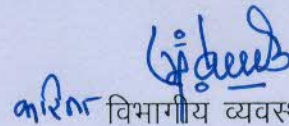 करिता विभागीय व्यवस्